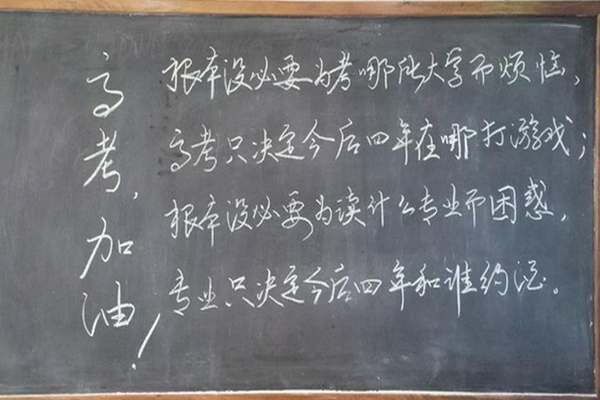 高考,加油!
根本没必要为考哪所大学而烦恼,
高考只决定今后四年在哪打游戏;
根本没必要为读什么专业而困惑,
专业只决定今后四年和谁约酒。